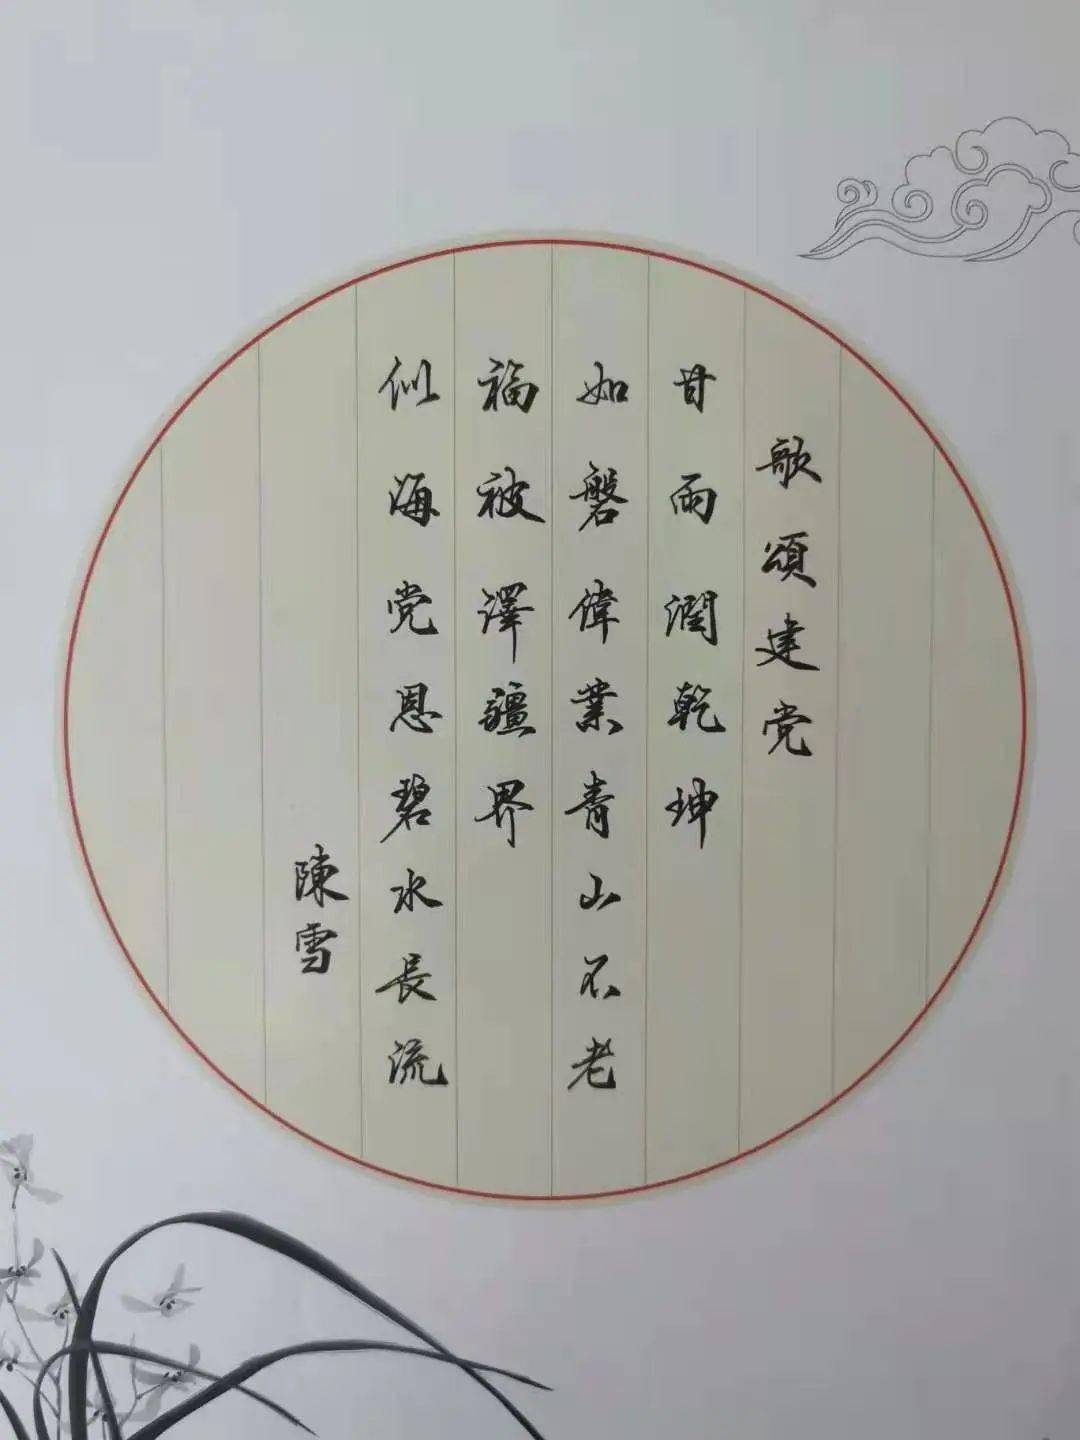 歌頌建党
甘雨潤乾坤
如磐偉業青山不老
福被澤疆界
似海党恩碧水長流
陳雪